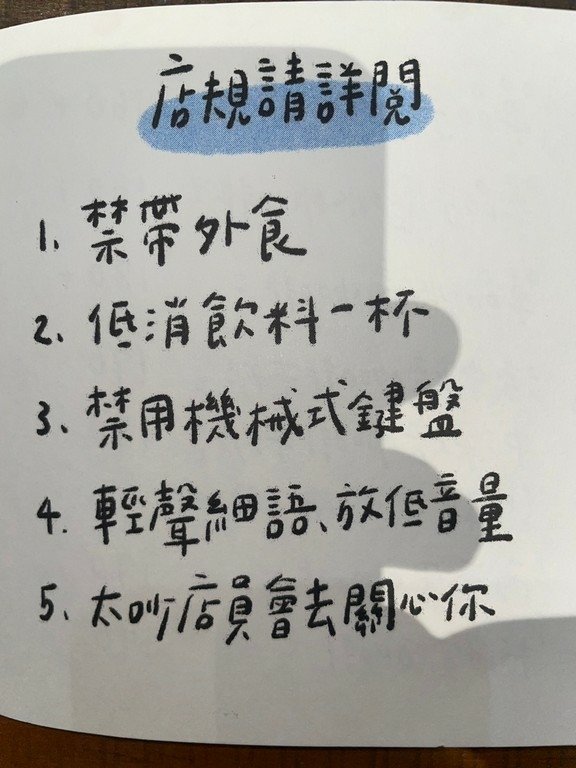 店規請詳閱
1. 禁帶外食
2. 低消飲料一杯
3、禁用機械式鍵盤
4. 輕聲細語、放低音量
5、太吵店員會去關心你